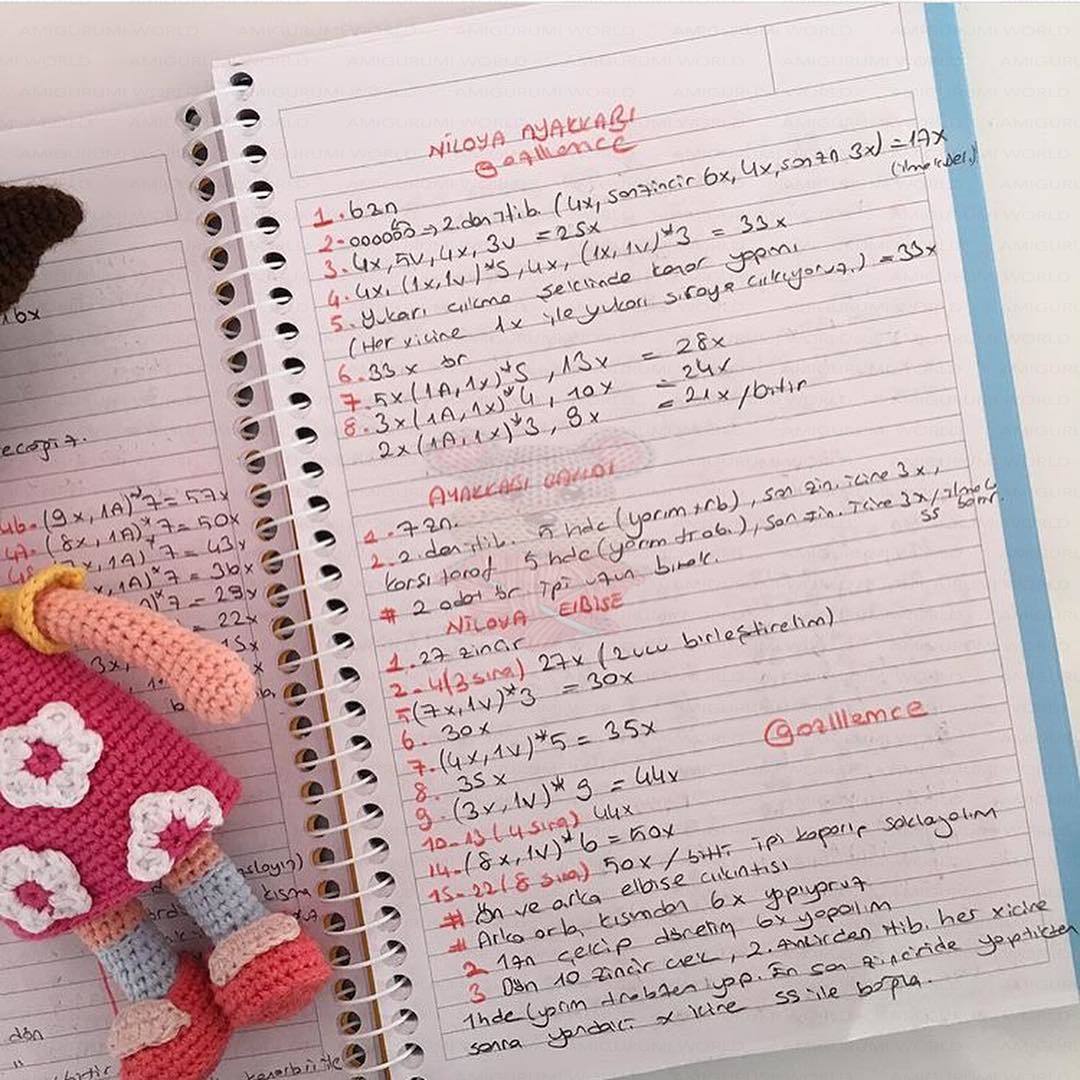 NİLOYA AYAKKABI
@gozlllence
1. 6zn
2- oooooo ⇒ 2.den itib. (4x, son zincir 6x, 4x, son zn 3x) = 17x
3. 4x, 5v, 4x, 3v = 25x
4. 4x, (1x,1v)*5, 4x, (1x,1v)*3 = 33x
5. Yukarı çıkma şeklinde kenar yapımı
(Her x içine 1x ile yukarı sıraya çıkıyoruz.) = 33x
6. 33x ör
7. 5x (1A,1x)*5, 13x = 28x
8. 3x (1A,1x)*4, 10x = 24x
2x (1A,1x)*3, 9x = 21x /bitir
AYAKKABI
1. 7zn.
2. 2.den itib. 5 hdc (yarım trb), son zin. içine 3x,
karşı taraf 5 hdc (yarım trab.), son zin. içine 3x/ilmek
ss
# 2 adet ör. ipi uzun bırak.
NİLOYA ELBİSE
1. 27 zincir
2-4(3 sıra) 27x (2 ucu birleştirelim)
5(7x,1v)*3 = 30x
6. 30x
7. (4x,1v)*5 = 35x
8. 35x
9. (3x,1v)*9 = 44x
@gozlllence
10-13 (4 sıra) 44x
14. (8x,1v)*6 = 50x
15-22 (8 sıra) 50x / bitti ipi koparıp saklayalım
# Ön ve arka elbise çıkıntısı
# Arka orta kısmdan 6x yapıyoruz
2 1zn çekip dönelim 6x yapalım
3 Dön 10 zincir çek, 2. zincirden itib. her x içine
1hdc (yarım trabzan yap. En son zinciride yaptıktan
sonra yandaki x içine ss ile bağla.
16x
4b- (9x,1A)*7 = 57x
(8x,1A)*7 = 50x
,1A)*7 = 43x
x,1A)*7 = 36x
)*7 = 29x
= 22x
15x
dön